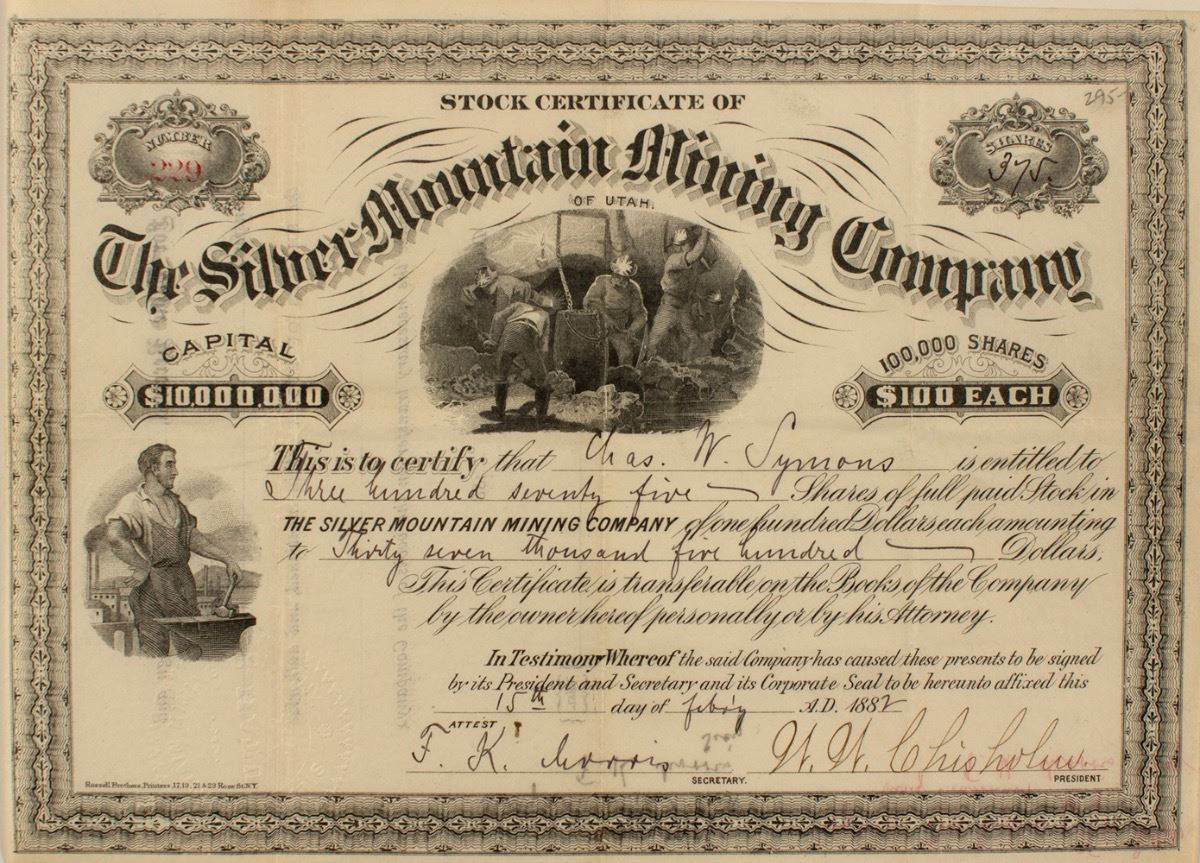 295-
STOCK CERTIFICATE OF
NUMBER
229
SHARES
375.
The Silver Mountain Mining Company
OF UTAH.
CAPITAL
$10,000,000
100,000 SHARES
$100 EACH
This is to certify that Chas. W. Symons is entitled to
Three hundred seventy five — Shares of full paid Stock in
THE SILVER MOUNTAIN MINING COMPANY of one hundred Dollars each amounting
to Thirty seven thousand five hundred — Dollars.
This Certificate is transferable on the Books of the Company
by the owner hereof personally or by his Attorney.
In Testimony Whereof the said Company has caused these presents to be signed
by its President and Secretary and its Corporate Seal to be hereunto affixed this
15th day of feby A.D. 1882
ATTEST
F. K. Morris W. W. Chisholm
SECRETARY. PRESIDENT
Russell Brothers, Printers, 17, 19, 21 & 23 Rose St. N.Y.